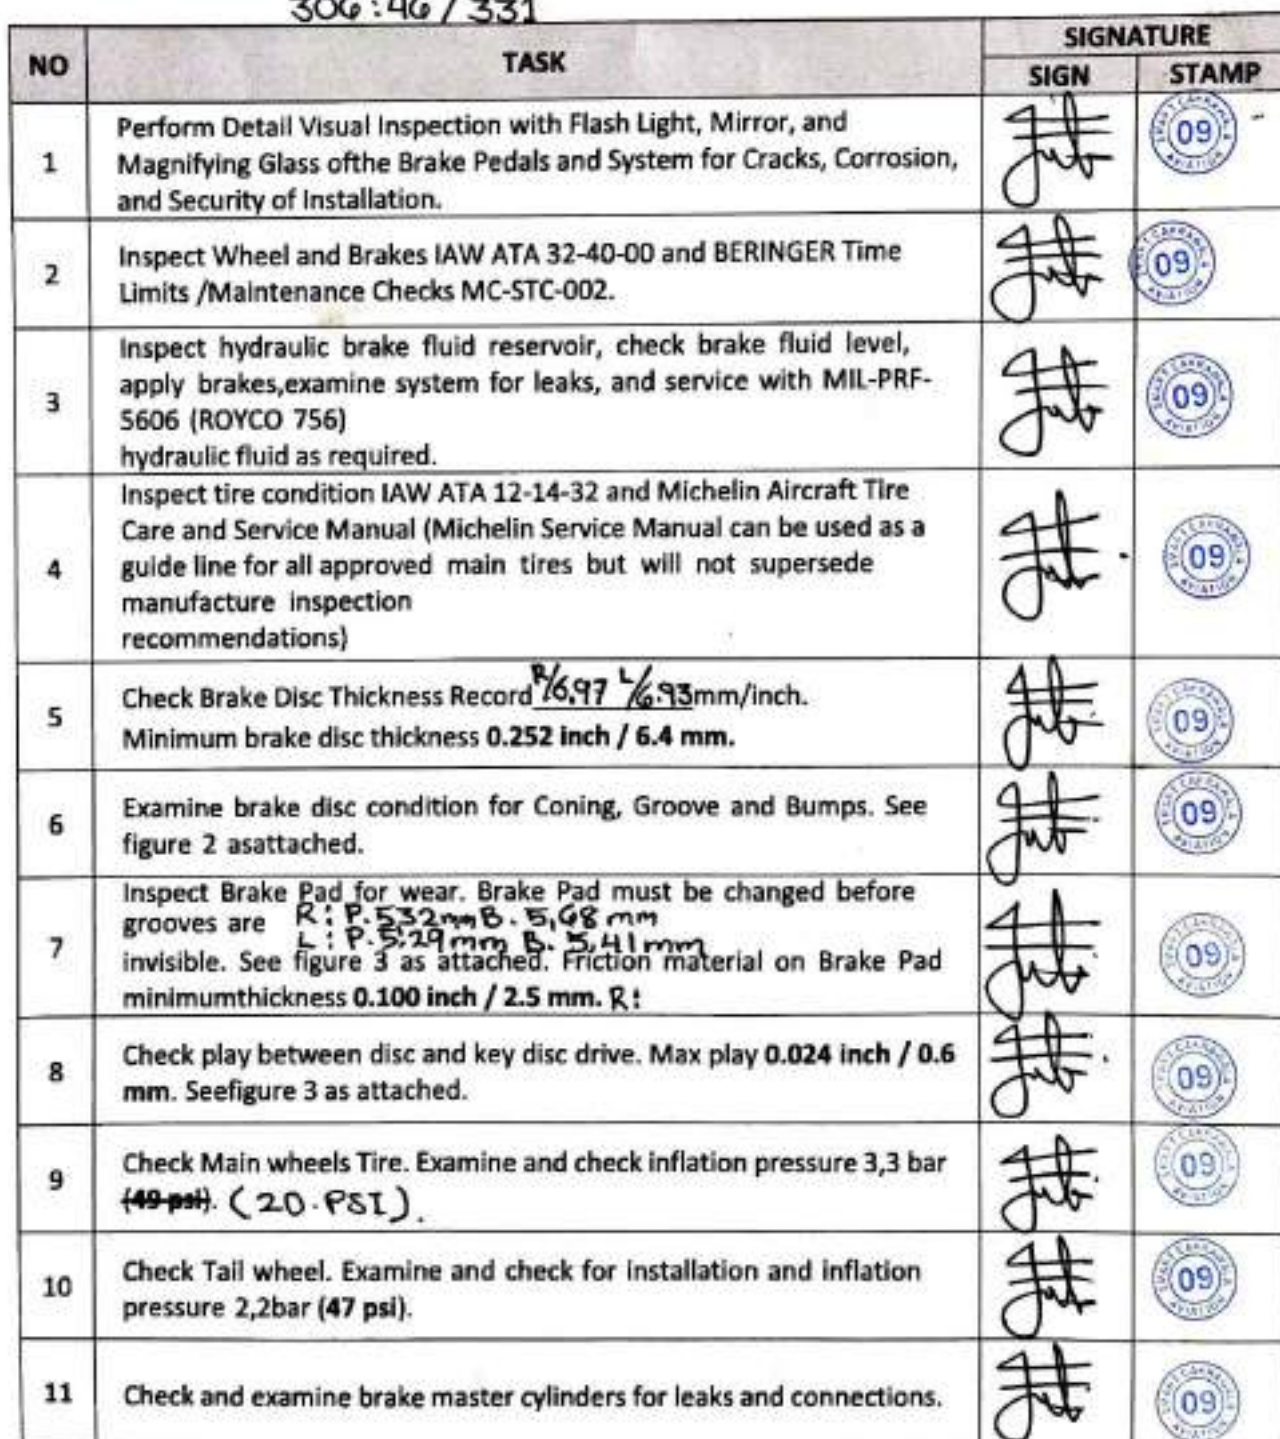 306:46 / 331
NO TASK SIGNATURE
SIGN STAMP
1 Perform Detail Visual Inspection with Flash Light, Mirror, and
Magnifying Glass ofthe Brake Pedals and System for Cracks, Corrosion,
and Security of Installation.
09
2 Inspect Wheel and Brakes IAW ATA 32-40-00 and BERINGER Time
Limits /Maintenance Checks MC-STC-002.
09
3 Inspect hydraulic brake fluid reservoir, check brake fluid level,
apply brakes,examine system for leaks, and service with MIL-PRF-
5606 (ROYCO 756)
hydraulic fluid as required.
09
4 Inspect tire condition IAW ATA 12-14-32 and Michelin Aircraft Tire
Care and Service Manual (Michelin Service Manual can be used as a
guide line for all approved main tires but will not supersede
manufacture inspection
recommendations)
09
5 Check Brake Disc Thickness Record R/6.97 L/6.93 mm/inch.
Minimum brake disc thickness 0.252 inch / 6.4 mm.
09
6 Examine brake disc condition for Coning, Groove and Bumps. See
figure 2 asattached.
09
7 Inspect Brake Pad for wear. Brake Pad must be changed before
grooves are R: P. 532mm B. 5,68 mm
L: P. 5.29mm B. 5,41mm
invisible. See figure 3 as attached. Friction material on Brake Pad
minimumthickness 0.100 inch / 2.5 mm. R:
09
8 Check play between disc and key disc drive. Max play 0.024 inch / 0.6
mm. Seefigure 3 as attached.
09
9 Check Main wheels Tire. Examine and check inflation pressure 3,3 bar
(49 psi). (20.PSI).
09
10 Check Tail wheel. Examine and check for installation and inflation
pressure 2,2bar (47 psi).
09
11 Check and examine brake master cylinders for leaks and connections.
09